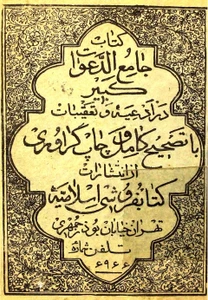 کتاب
جامع الدعوات
کبیر
در ادعیه و تعقیبات
با تصحیح کامل و چاپ گراوری
از انتشارات
کتابفروشی اسلامیه
تهران خیابان بوذرجمهری
تلفن شماره